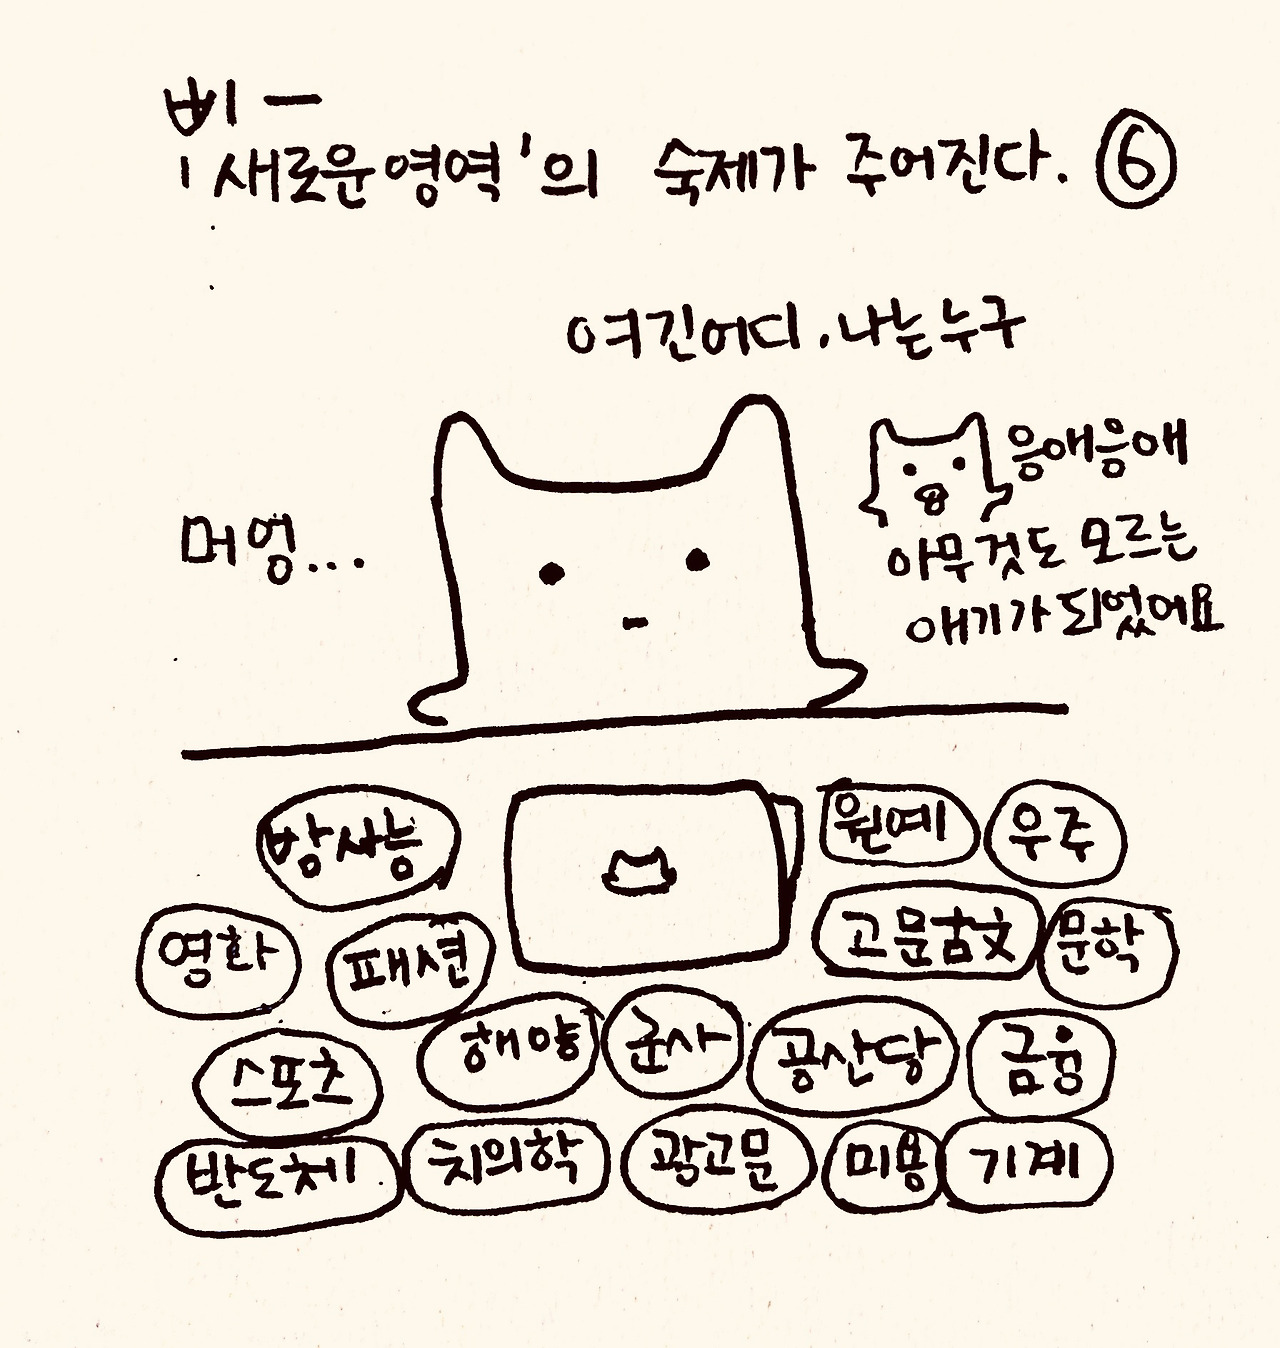 삐 ㅡ
'새로운영역'의 숙제가 주어진다. ⑥
여긴어디.나는누구
응애응애
머엉...
아무것도 모르는
애기가 되었어요
방사능
원예
우주
영화
패션
고문古文
문학
스포츠
해양
군사
공산당
금융
반도체
치의학
광고문
미용
기계